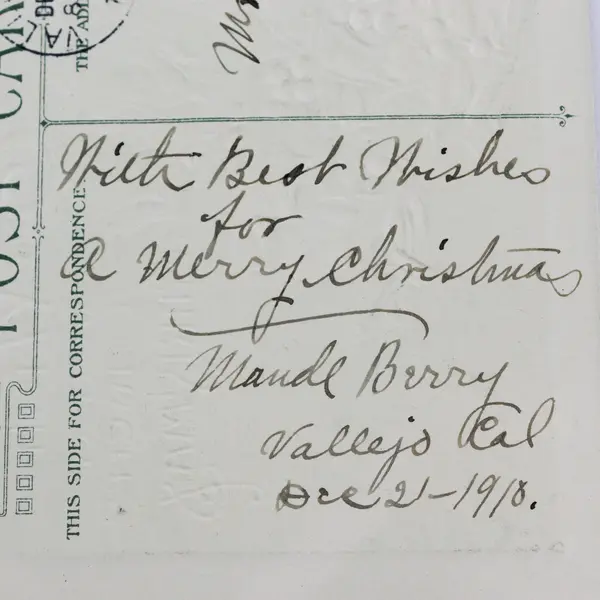 With Best Wishes
for
a Merry Christmas
Maude Berry
Vallejo Cal
Dec 21-1910.
THIS SIDE FOR CORRESPONDENCE
POST CA
THE AD